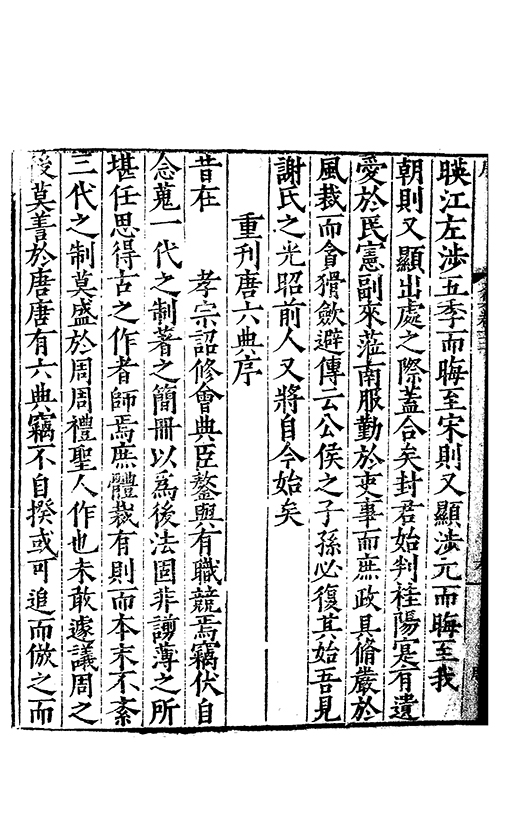 暎江左涉五季而晦至宋則又顯涉元而晦至我
朝則又顯出處之際蓋合矣封君始判桂陽寔有遺
愛於民憲副來蒞南服勤於吏事而庶政具脩嚴於
風裁而會猾歛避傳云公侯之子孫必復其始吾見
謝氏之光昭前人又將自今始矣
重刊唐六典序
昔在 孝宗詔修會典臣鏊與有職競焉竊伏自
念蒐一代之制著之簡冊以爲後法固非謭薄之所
堪任思得古之作者師焉庶體裁有則而本末不紊
三代之制莫盛於周周禮聖人作也未敢遽議周之
後莫善於唐唐有六典竊不自揆或可追而倣之而